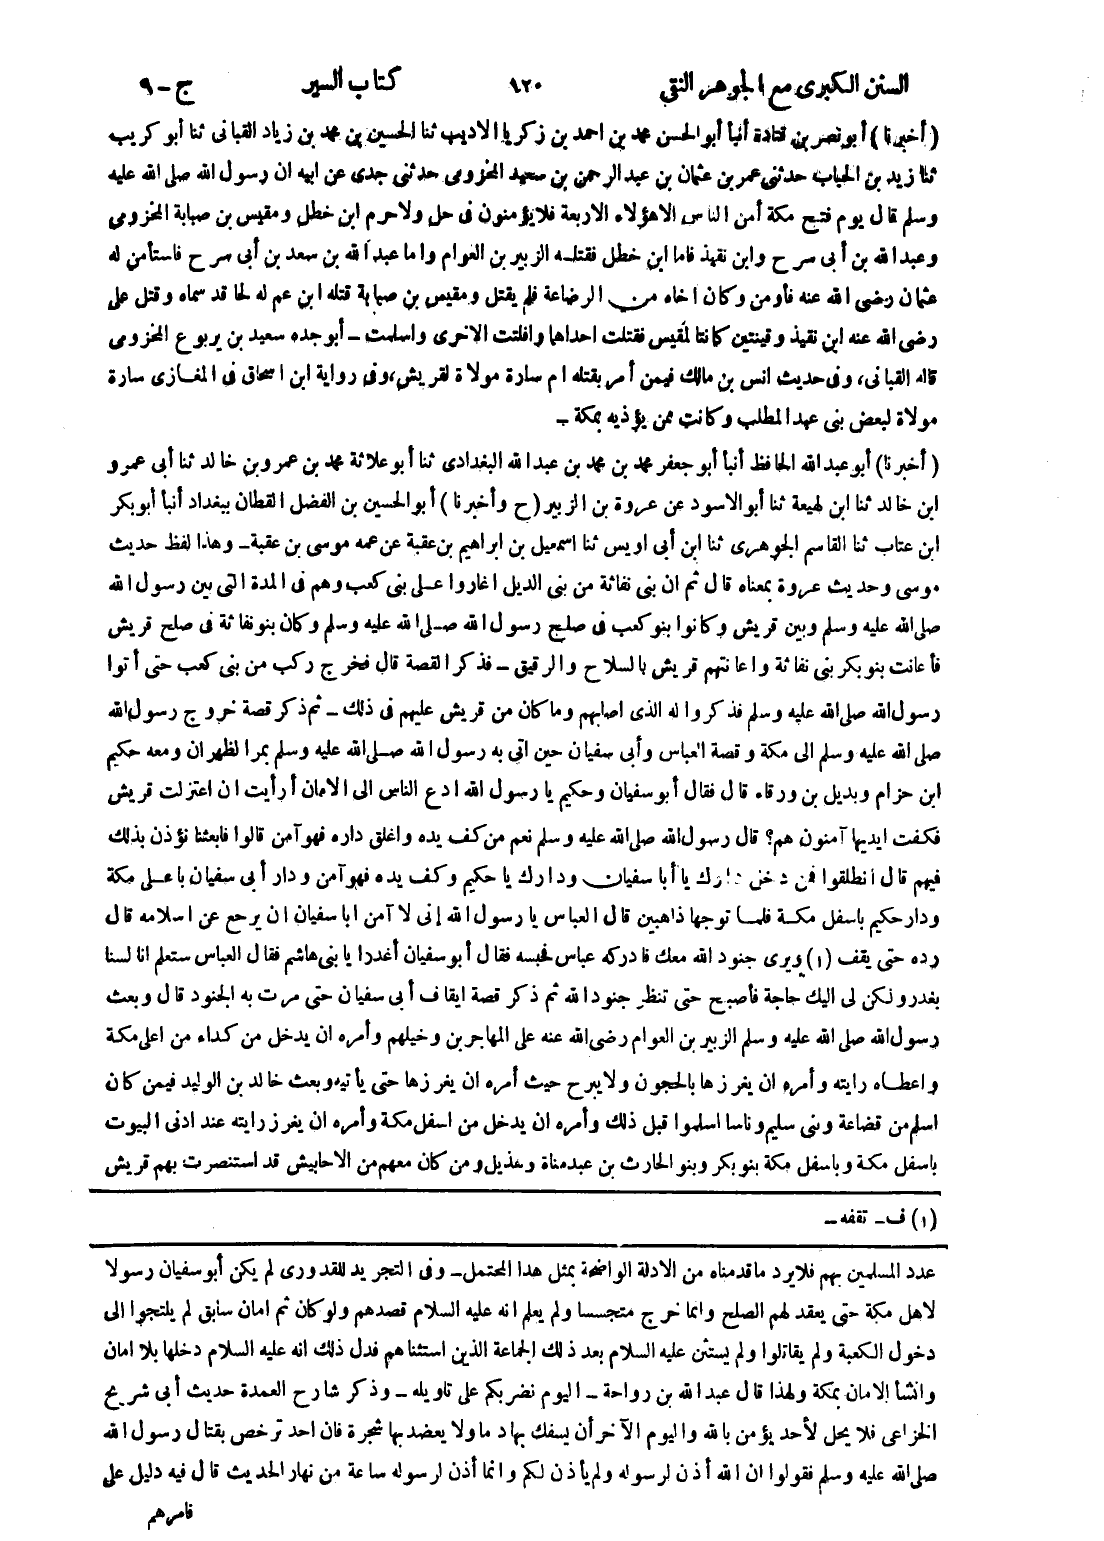 السنن الكبرى مع الجوهر النقى ١٢٠ كتاب السير ج - ٩
( أخبرنا ) أبو نصر بن قتادة أنبأ أبو الحسن محمد بن احمد بن زكريا الاديب ثنا الحسين بن محمد بن زياد القبانى ثنا أبو كريب
ثنا زيد بن الحباب حدثنى عمر بن عثمان بن عبد الرحمن بن سعيد المخزومى حدثنى جدى عن ابيه ان رسول الله صلى الله عليه
وسلم قال يوم فتح مكة أمن الناس الاهؤلاء الاربعة فلايؤمنون فى حل ولاحرم ابن خطل ومقيس بن صبابة المخزومى
وعبد الله بن أبى سرح وابن نقيذ فاما ابن خطل فقتله الزبير بن العوام واما عبد الله بن سعد بن أبى سرح فاستأمن له
عثمان رضى الله عنه فأومن وكان اخاه من الرضاعة فلم يقتل ومقيس بن صبابة قتله ابن عم له لحا قد سماه وقتل على
رضى الله عنه ابن نقيذ وقينتين كانتا لمقيس فقتلت احداها وافلتت الاخرى واسلمت - أبو جده سعيد بن يربوع المخزومى
قاله القبانى، وفى حديث انس بن مالك فيمن أمر بقتله ام سارة مولاة لقريش، وفى رواية ابن اسحاق فى المغازى سارة
مولاة لبعض بنى عبد المطلب وكانت ممن يؤذيه بمكة -
( أخبرنا ) أبو عبد الله الحافظ أنبأ أبو جعفر محمد بن محمد بن عبد الله البغدادى ثنا أبو علاثة محمد بن عمرو بن خالد ثنا أبى عمرو
ابن خالد ثنا ابن لهيعة ثنا أبو الاسود عن عروة بن الزبير ( ح وأخبرنا ) أبو الحسين بن الفضل القطان ببغداد أنبأ أبو بكر
ابن عتاب ثنا القاسم الجوهرى ثنا ابن أبى اويس ثنا اسمعيل بن ابراهيم بن عقبة عن عمه موسى بن عقبة - وهذا لفظ حديث
موسى وحديث عروة بمعناه قال ثم ان بنى نفاثة من بنى الديل اغاروا على بنى كعب وهم فى المدة التى بين رسول الله
صلى الله عليه وسلم وبين قريش وكانوا بنو كعب فى صلح رسول الله صلى الله عليه وسلم وكان بنو نفاثة فى صلح قريش
فأعانت بنو بكر بنى نفاثة واعانتهم قريش بالسلاح والرقيق - فذكر القصة قال فخرج ركب من بنى كعب حتى أتوا
رسول الله صلى الله عليه وسلم فذكروا له الذى اصابهم وما كان من قريش عليهم فى ذلك - ثم ذكر قصة خروج رسول الله
صلى الله عليه وسلم الى مكة وقصة العباس وأبى سفيان حين اتى به رسول الله صلى الله عليه وسلم بمر الظهران ومعه حكيم
ابن حزام وبديل بن ورقاء قال فقال أبو سفيان وحكيم يا رسول الله ادع الناس الى الامان أرأيت ان اعتزلت قريش
فكفت ايديها آمنون هم؟ قال رسول الله صلى الله عليه وسلم نعم من كف يده واغلق داره فهو آمن قالوا فابعثنا نؤذن بذلك
فيهم قال انطلقوا فمن دخل دارك يا أبا سفيان ودارك يا حكيم وكف يده فهو آمن ودار أبى سفيان باعلى مكة
ودار حكيم باسفل مكة فلما توجها ذاهبين قال العباس يا رسول الله إنى لا آمن ابا سفيان ان يرجع عن اسلامه قال
رده حتى يقف (١) ويرى جنود الله معك فادركه عباس فحبسه فقال أبو سفيان أغدرا يا بنى هاشم فقال العباس ستعلم انا لسنا
بغدر ولكن لى اليك حاجة فأصبح حتى تنظر جنود الله ثم ذكر قصة ايقاف أبى سفيان حتى مرت به الجنود قال وبعث
رسول الله صلى الله عليه وسلم الزبير بن العوام رضى الله عنه على المهاجرين وخيلهم وأمره ان يدخل من كداء من اعلى مكة
واعطاه رايته وأمره ان يغرزها بالحجون ولا يبرح حيث أمره ان يغرزها حتى يأتيه وبعث خالد بن الوليد فيمن كان
اسلم من قضاعة وبنى سليم وناسا اسلموا قبل ذلك وأمره ان يدخل من اسفل مكة وأمره ان يغرز رايته عند ادنى البيوت
باسفل مكة وباسفل مكة بنو بكر وبنو الحارث بن عبد مناة وهذيل ومن كان معهم من الاحابيش قد استنصرت بهم قريش
(١) ف - تقفه -
عدد المسلمين بهم فلا يرد ما قدمناه من الادلة الواضحة بمثل هذا المحتمل - وفى التجريد للقدورى لم يكن أبو سفيان رسولا
لاهل مكة حتى يعقد لهم الصلح وانما خرج متجسسا ولم يعلم انه عليه السلام قصدهم ولو كان ثم امان سابق لم يلتجوا الى
دخول الكعبة ولم يقاتلوا ولم يستثن عليه السلام بعد ذلك الجماعة الذين استثناهم فدل ذلك انه عليه السلام دخلها بلا امان
وانشأ الامان بمكة ولهذا قال عبد الله بن رواحة - اليوم نضربكم على تاويله - وذكر شارح العمدة حديث أبى شريح
الخزاعى فلا يحل لأحد يؤمن بالله واليوم الآخر أن يسفك بها دما ولا يعضد بها شجرة فان احد ترخص بقتال رسول الله
صلى الله عليه وسلم فقولوا ان الله أذن لرسوله ولم يأذن لكم وانما أذن لرسوله ساعة من نهار الحديث قال فيه دليل على
فامرهم